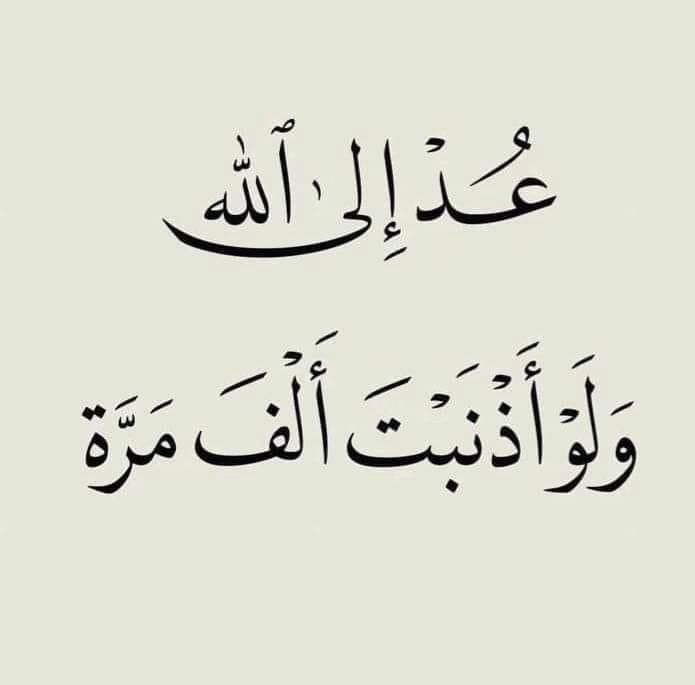 عُدْ إِلىٰ ٱللّٰه
وَلَوْ أَذْنَبْتَ أَلْفَ مَرَّة